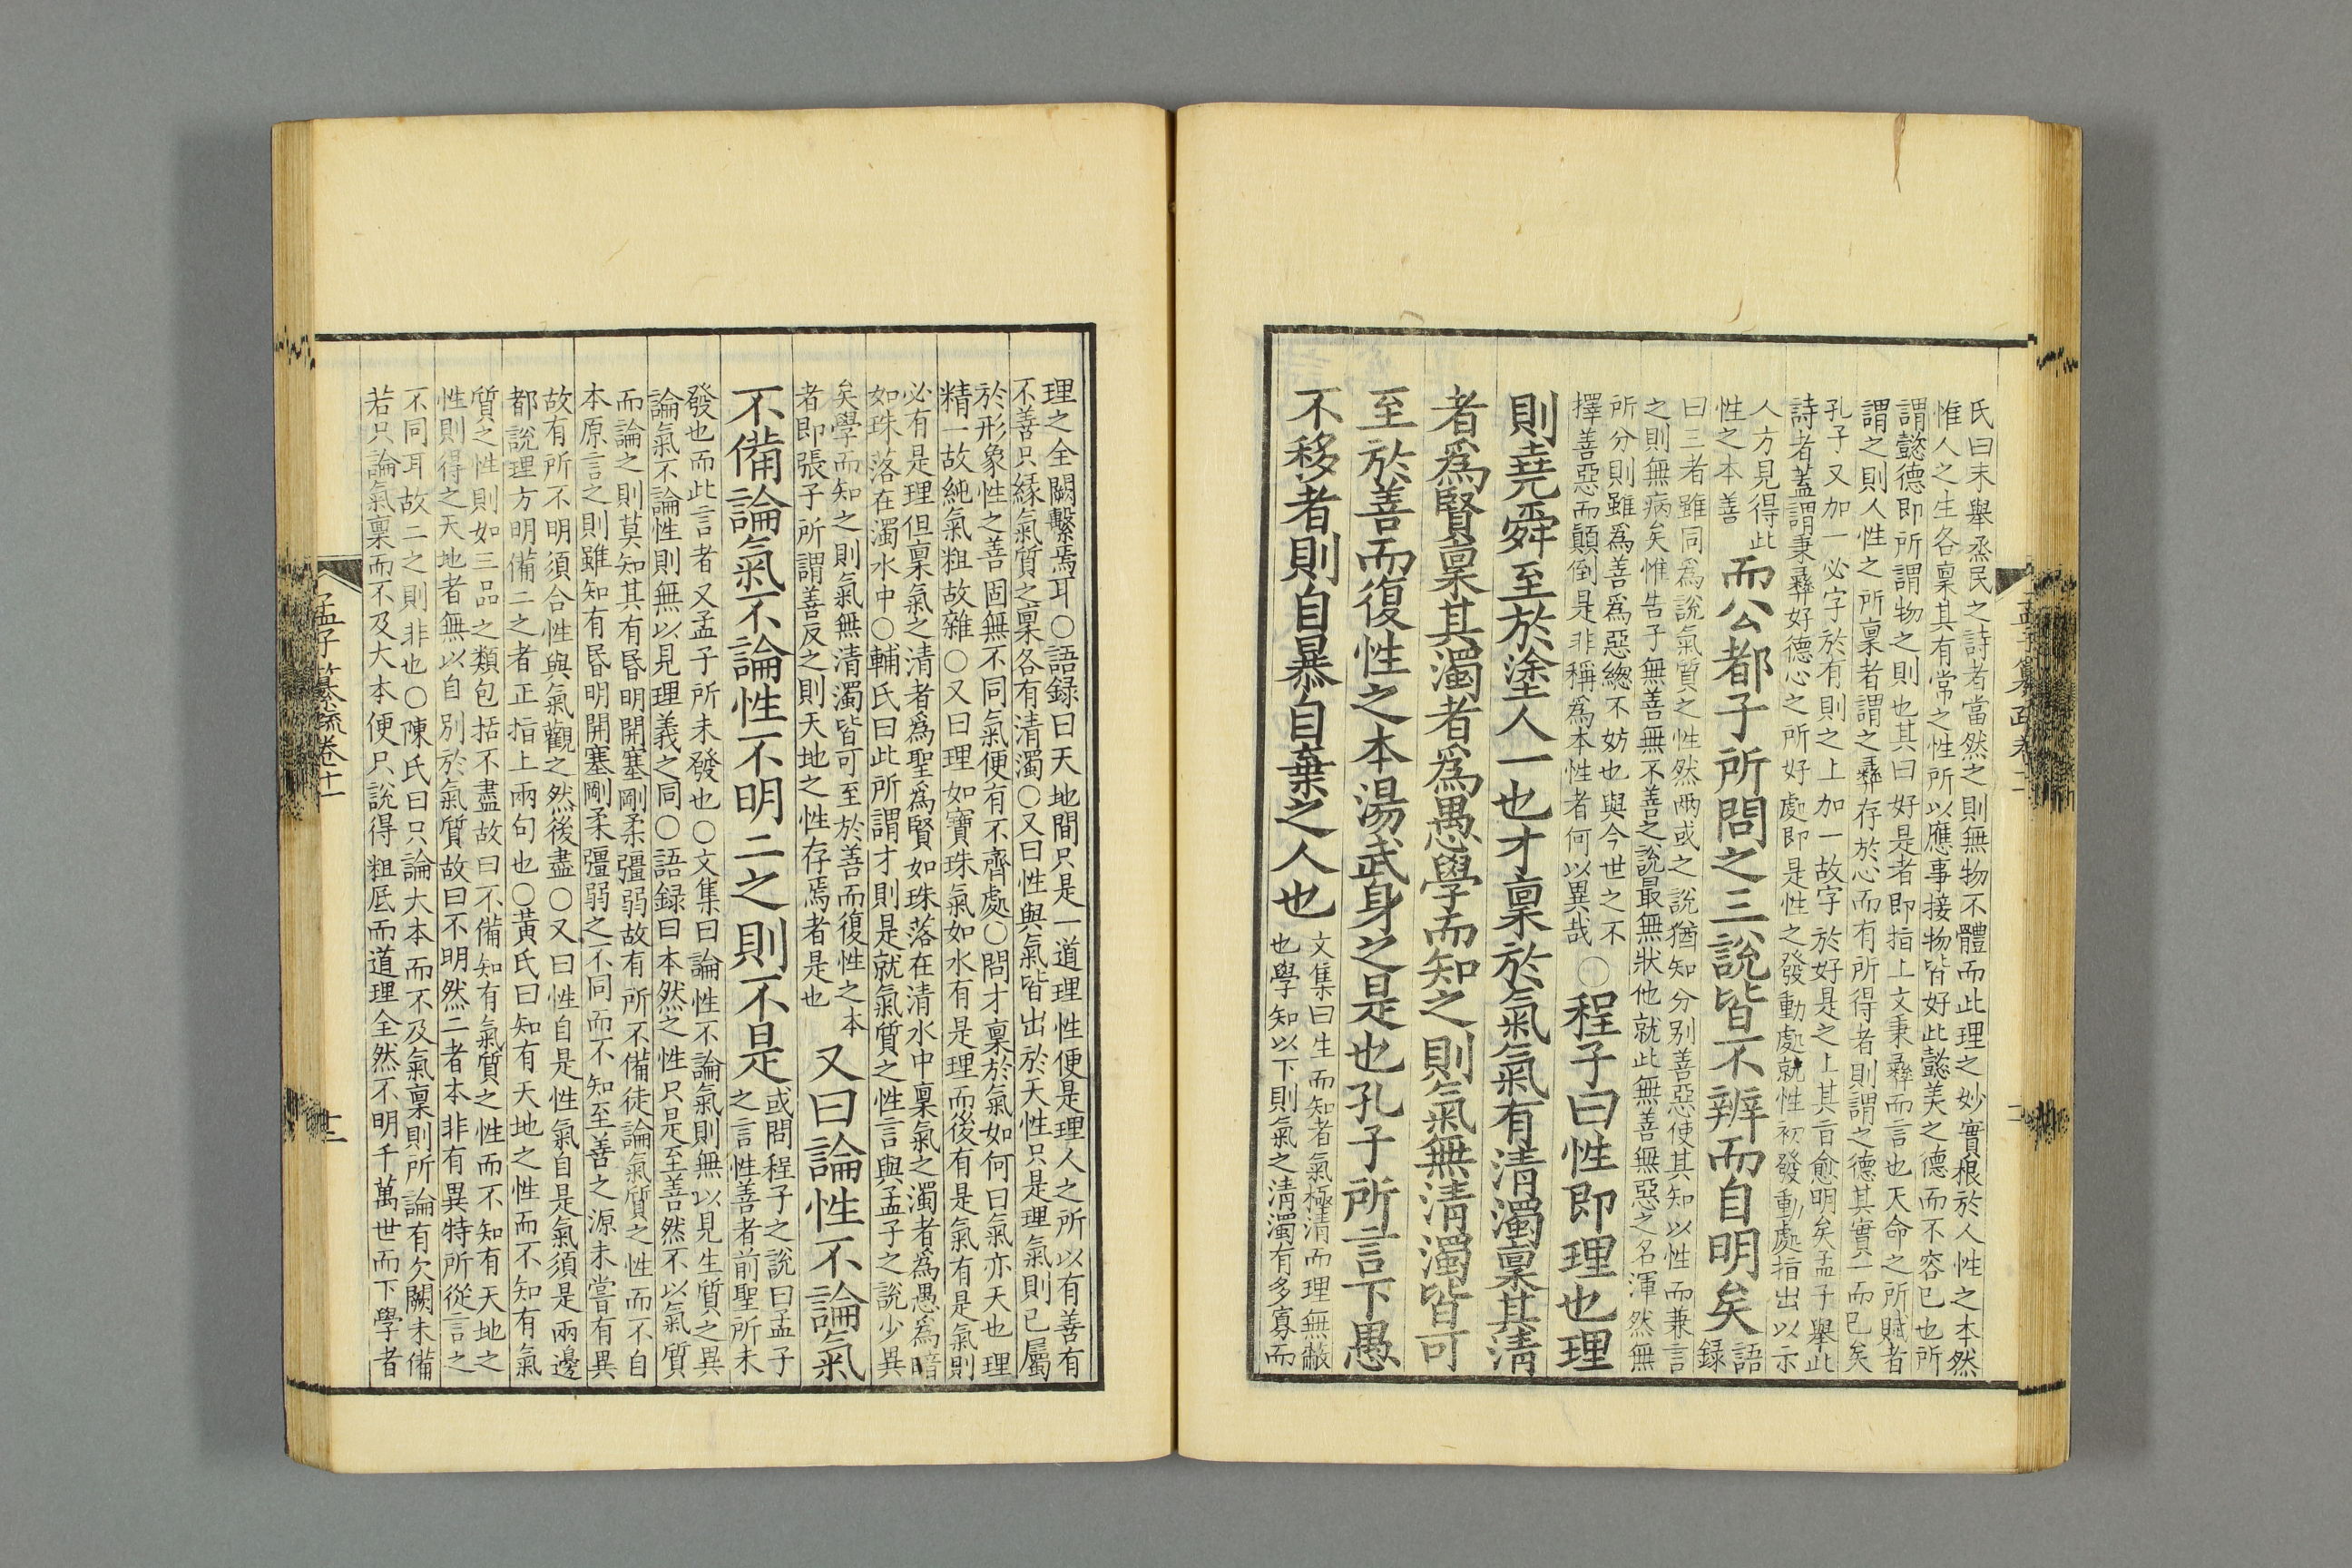 氏曰末舉烝民之詩者當然之則無物不體而此理之妙實根於人性之本然
惟人之生各稟其有常之性所以應事接物皆好此懿美之德而不容已也所
謂懿德即所謂物之則也其曰好是者即指上文秉彝而言也天命之所賦者
謂之則人性之所稟者謂之彝存於心而有所得者則謂之德其實一而已矣
孔子又加一必字於有則之上加一故字於好是之上其旨愈明矣孟子舉此
詩者蓋謂秉彝好德心之所好處即是性之發動處就性初發動處指出以示
人方見得此
性之本善
而公都子所問之三說皆不辨而自明矣
語
錄
曰三者雖同為說氣質之性然兩或之說猶知分別善惡使其知以性而兼言
之則無病矣惟告子無善無不善之說最無狀他就此無善無惡之名渾然無
所分則雖為善為惡總不妨也與今世之不
擇善惡而顛倒是非稱為本性者何以異哉
○程子曰性即理也理
則堯舜至於塗人一也才稟於氣氣有清濁稟其清
者爲賢稟其濁者爲愚學而知之則氣無清濁皆可
至於善而復性之本湯武身之是也孔子所言下愚
不移者則自暴自棄之人也
文集曰生而知者氣極清而理無蔽
也學知以下則氣之清濁有多寡而
理之全闕繫焉耳○語録曰天地間只是一道理性便是理人之所以有善有
不善只緣氣質之稟各有清濁○又曰性與氣皆出於天性只是理氣則已屬
於形象性之善固無不同氣便有不齊處○問才稟於氣如何曰氣亦天也理
精一故純氣粗故雜○又曰理如寶珠氣如水有是理而後有是氣有是氣則
必有是理但稟氣之清者爲聖爲賢如珠落在清水中稟氣之濁者爲愚爲暗
如珠落在濁水中○輔氏曰此所謂才則是就氣質之性言與孟子之說少異
矣學而知之則氣無清濁皆可至於善而復性之本
者即張子所謂善反之則天地之性存焉者是也
又曰論性不論氣
不備論氣不論性不明二之則不是
或問程子之說曰孟子
之言性善者前聖所未
發也而此言者又孟子所未發也○文集曰論性不論氣則無以見生質之異
論氣不論性則無以見理義之同○語録曰本然之性只是至善然不以氣質
而論之則莫知其有昏明開塞剛柔彊弱故有所不備徒論氣質之性而不自
本原言之則雖知有昏明開塞剛柔彊弱之不同而不知至善之源未嘗有異
故有所不明須合性與氣觀之然後盡○又曰性自是性氣自是氣須是兩邊
都說理方明備二之者正指上兩句也○黃氏曰知有天地之性而不知有氣
質之性則如三品之類包括不盡故曰不備知有氣質之性而不知有天地之
性則得之天地者無以自別於氣質故曰不明然二者本非有異特所從言之
不同耳故二之則非也○陳氏曰只論大本而不及氣稟則所論有欠闕未備
若只論氣稟而不及大本便只說得粗底而道理全然不明千萬世而下學者
孟子纂疏卷十一
十二